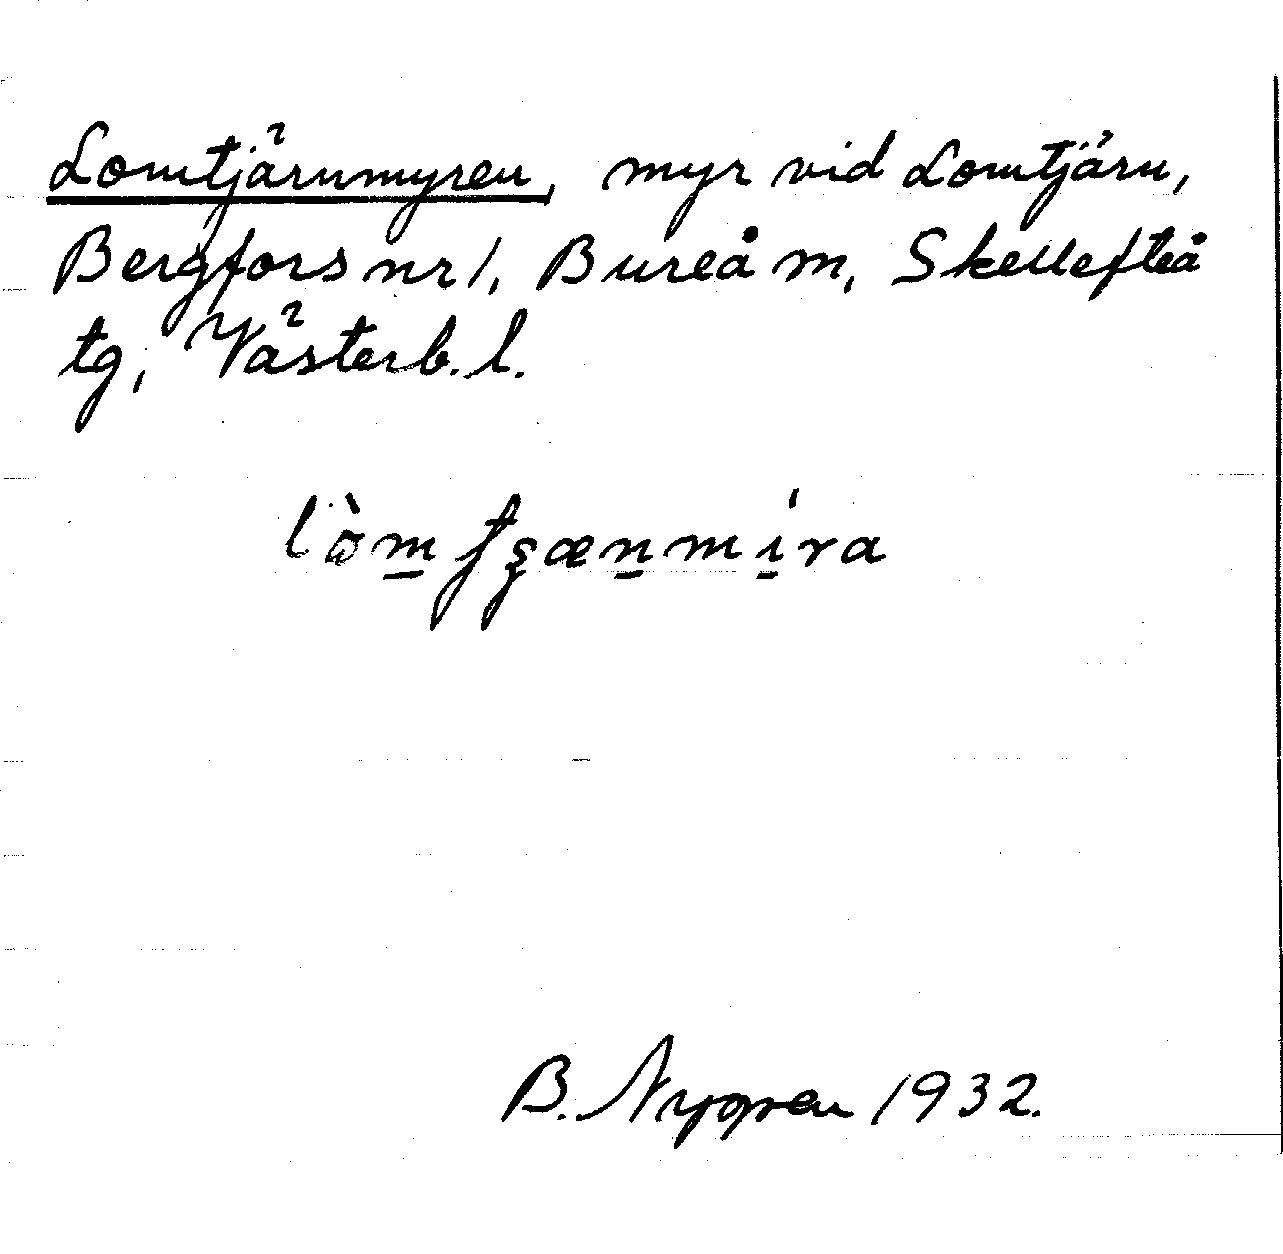 Lomtjärnmyren, myr vid Lomtjärn,
Bergfors nr 1, Bureå m, Skellefteå
tg, Västerb. l.
B. Nygren 1932.